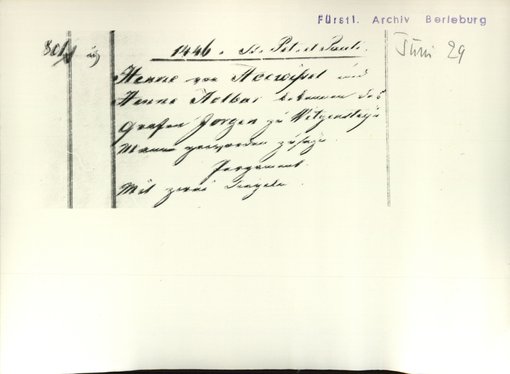 Fürstl. Archiv Berleburg
1446. St. Pet. et Pauli.
Juni 29
Henne von und
Henne bekennen des
Grafen Jorgen zu Witgenstein
Manne geworden zu sein
Pergament.
Mit zwei Siegeln.